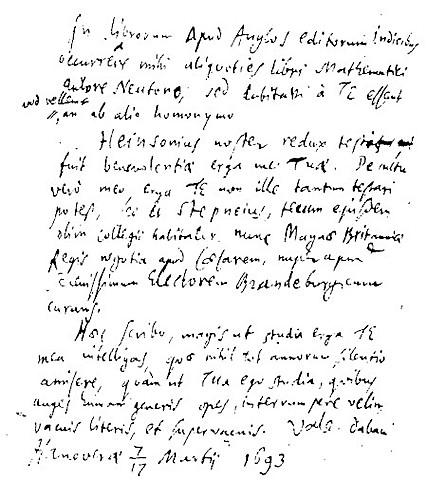 In librorum apud Anglos editorum Indicibus
occurrere mihi aliquoties libri Mathematici
autore Neutono, sed dubitavi à TE essent
quod vellem, an ab alio homonymo
Heinsonius noster redux
fuit benevolentiæ erga me Tuæ. De cultu
vero meo erga TE non ille tantum testari
potest, sed et Stepneius, tecum ejusdem
olim collegii habitator, nunc Magnæ Britanniæ
Regis negotia apud Cæsarem, nuper apud
Serenissimum Electorem Brandeburgicum
curans.
Hoc scribo, magis ut studia erga TE
mea intelligas, quæ nihil tot annorum silentio
amisere, quam ut Tua ego studia, quibus
auges humani generis opes, interrumpere velim
vacuis literis, et supervacuis. Vale. dabam
Hanoveræ 7/17 Martij 1693